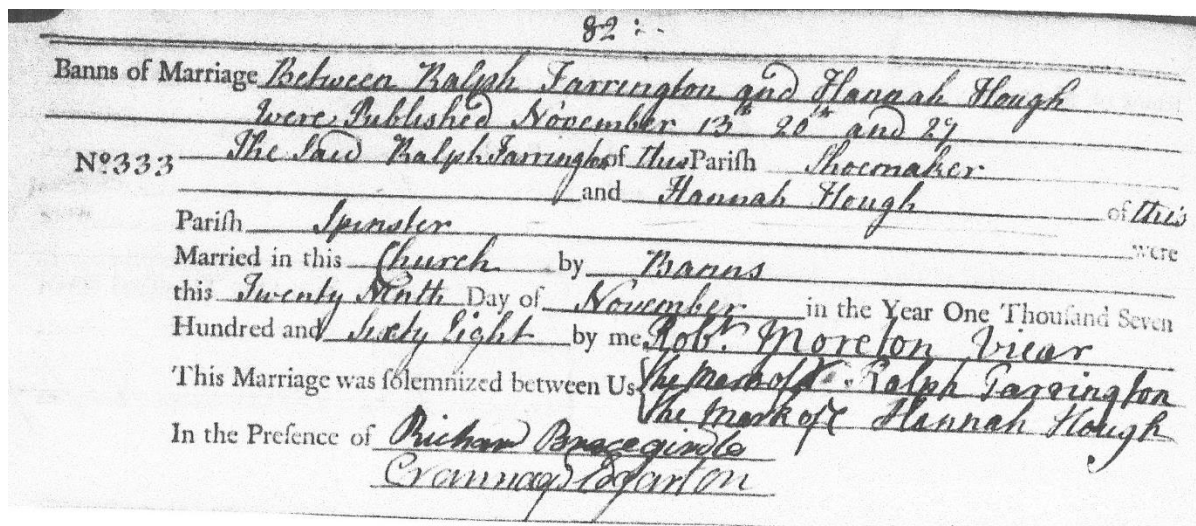 82 :-
Banns of Marriage Between Ralph Farrington and Hannah Hough
were Published November 13th 20th and 27
No 333 The Said Ralph Farrington of this Pariſh Shoemaker
and Hannah Hough of this
Pariſh Spinster were
Married in this Church by Banns
this Twenty Ninth Day of November in the Year One Thouſand Seven
Hundred and Sixty Eight by me Robt. Moreton Vicar
This Marriage was ſolemnized between Us The Mark of X Ralph Farrington
The Mark of Hannah Hough
In the Preſence of Richard Bracegirdle
Edgarton